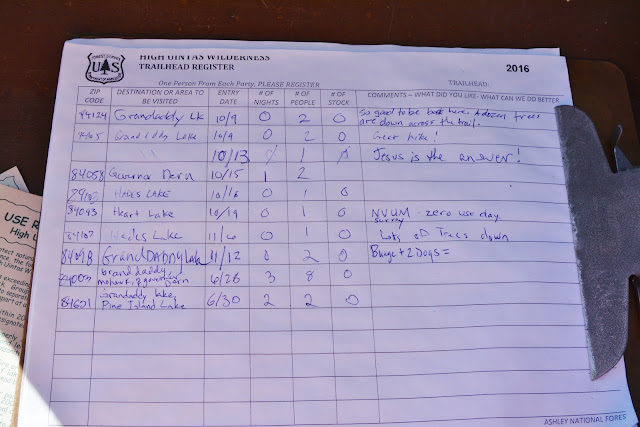 HIGH UINTAS WILDERNESS
TRAILHEAD REGISTER
2016
FOREST SERVICE
UAS
One Person From Each Party, PLEASE REGISTER
TRAILHEAD:
ZIP CODE DESTINATION OR AREA TO BE VISITED ENTRY DATE # OF NIGHTS # OF PEOPLE # OF STOCK COMMENTS – WHAT DID YOU LIKE- WHAT CAN WE DO BETTER
84124 Grandaddy Lk 10/9 0 2 0 So good to be back here. A dozen trees
are down across the trail.
Grandaddy Lake 10/9 0 2 0 Great hike!
10/13 1 Jesus is the answer!
84058 Governor Dern 10/15 1 2
HADES LAKE 10/16 0 1 0
84093 Heart Lake 10/19 0 1 0 NVUM - zero use day
survey
84107 Hades Lake 11/6 0 1 0 Lots of Trees down
84098 GrandDADDY Lake 11/12 0 2 0 2 Dogs =
84003 granddaddy
mohawk, governor dern 6/28 3 8 0
Grandaddy lake,
Pine Island Lake 6/30 2 2 0
ASHLEY NATIONAL FORES
USE R
High U